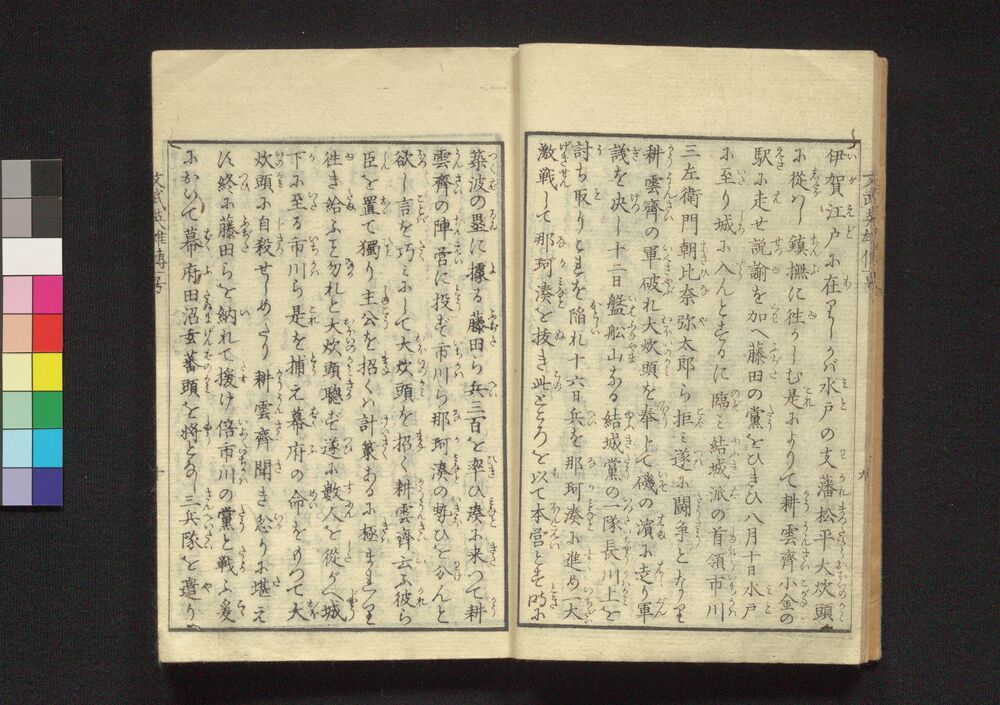 伊賀江戸に在りしが水戸の支藩松平大炊頭
に從ひし鎮撫に徃かしむ是によりて耕雲齊小金の
駅に走せ説諭を加へ藤田の黨をひきひ八月十日水戸
に至り城に入んとするに臨ミ結城派の首領市川
三左衛門朝比奈弥太郎ら拒ミ遂に闘争となり
耕雲齊の軍破れ大炊頭を奉じて磯の濵に走り軍
議を決し十二日盤船山なる結城黨の一隊長川上を
討ち取りとまを陥れ十六日兵を那珂湊に進め一大
激戦して那珂湊を抜き此ところを以て本営とす時に
築波の塁に據る藤田ら兵三百を率ひ湊に来つて耕
雲齊の陣営に投ず市川ら那珂湊の勢ひを分んと
欲し言を巧ミにして大炊頭を招く耕雲齊云ふ彼ら
臣を置て獨り主公を招くハ計策あるに極まれり
徃き給ふこと勿れと大炊頭聴ず遂に數人を從がへ城
下に至る市川ら是を捕え幕府の命をもつて大
炊頭に自殺せしめたり耕雲齊聞き怒りに堪え
ず終に藤田らを納れて援け倍市川の黨と戦ふ爰
において幕府田沼玄蕃頭を將となし三兵隊を遣り
文武英雄傳一号
九
文武英雄傳一号
十